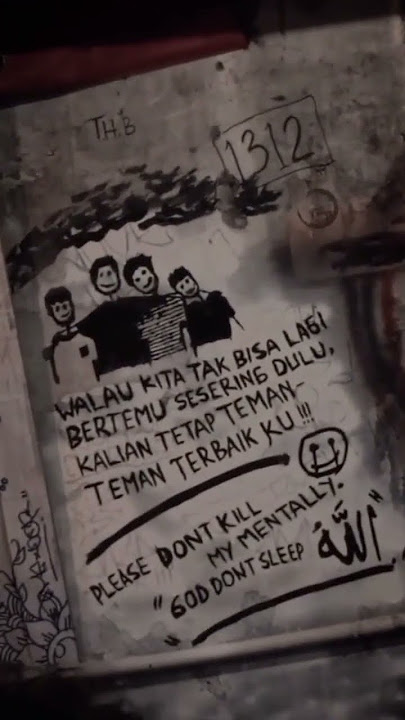 TH.B
1312
WALAU KITA TAK BISA LAGI
BERTEMU SESERING DULU,
KALIAN TETAP TEMAN-
TEMAN TERBAIK KU!!!
PLEASE DONT KILL
MY MENTALLY.
"GOD DONT SLEEP الله"